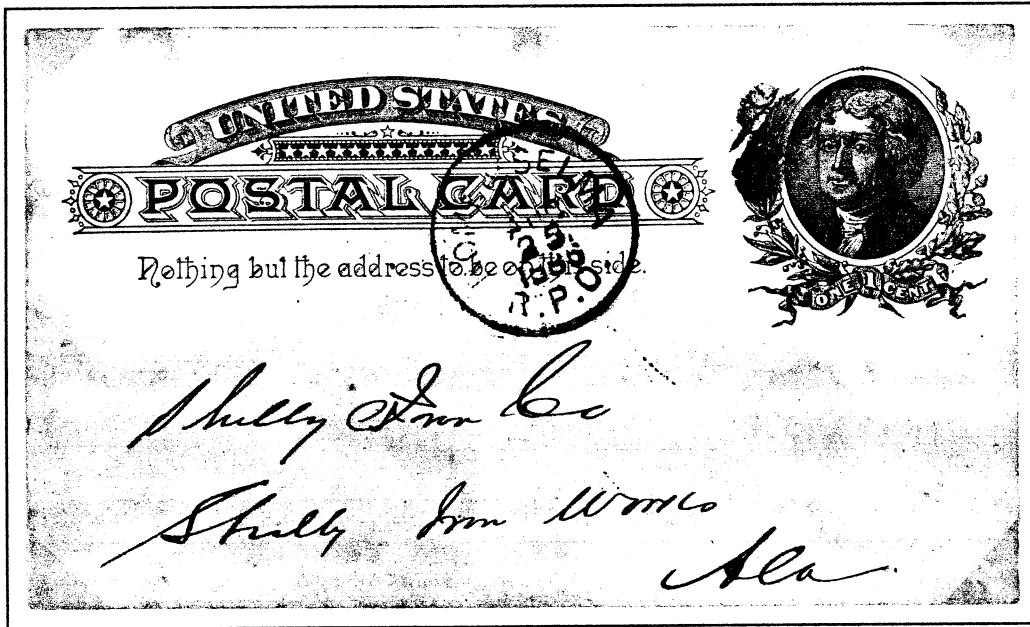 UNITED STATES
POSTAL CARD
Nothing but the address to be on this side.
ONE 1 CENT
SELMA
25
R.P.O.
Shelby Iron Co
Shelby Iron Works
Ala